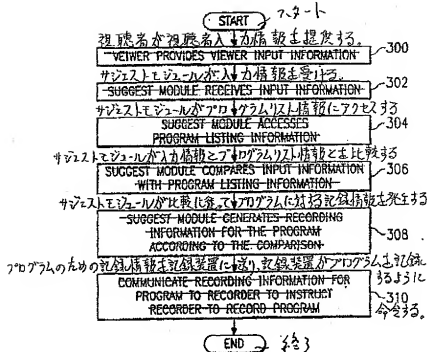 START スタート
視聴者が視聴者入力情報を提供する。
VEIWER PROVIDES VIEWER INPUT INFORMATION
300
サジェストモジュールが入力情報を受ける。
SUGGEST MODULE RECEIVES INPUT INFORMATION
302
サジェストモジュールがプログラムリスト情報にアクセスする
SUGGEST MODULE ACCESSES
PROGRAM LISTING INFORMATION
304
サジェストモジュールが入力情報とプログラムリスト情報とを比較する
SUGGEST MODULE COMPARES INPUT INFORMATION
WITH PROGRAM LISTING INFORMATION
306
サジェストモジュールが比較に従ってプログラムに対する記録情報を発生する
SUGGEST MODULE GENERATES RECORDING
INFORMATION FOR THE PROGRAM
ACCORDING TO THE COMPARISON
308
プログラムのための記録情報を記録装置に送り、記録装置がプログラムを記録
するように
命令する。
COMMUNICATE RECORDING INFORMATION FOR
PROGRAM TO RECORDER TO INSTRUCT
RECORDER TO RECORD PROGRAM
310
END 終了